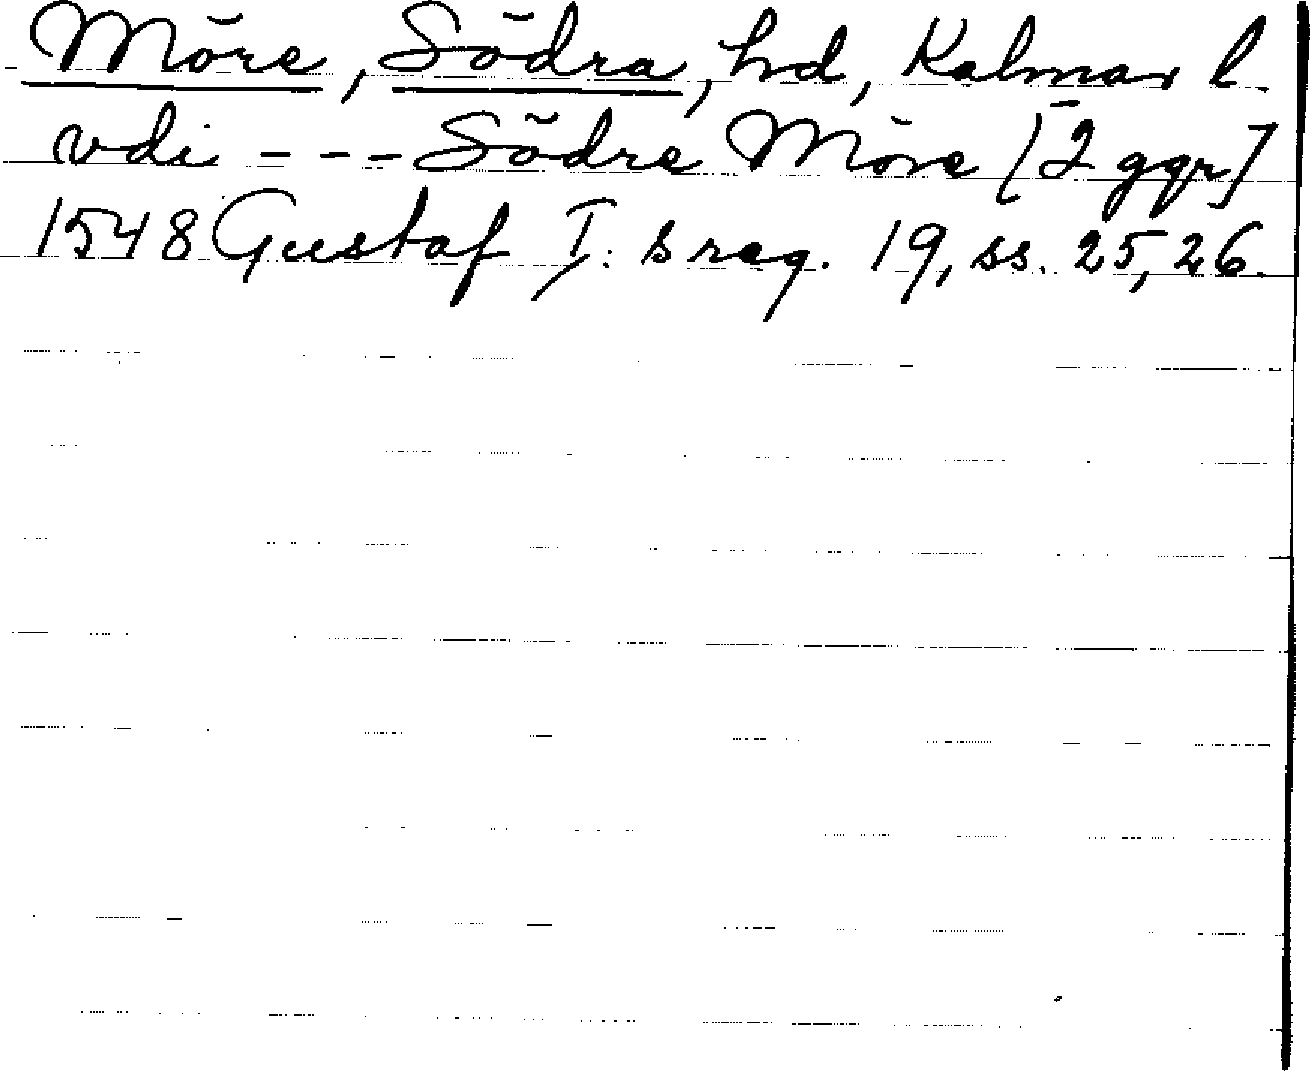 Möre, Södra, hd, Kalmar l.
vdi - - - Södre Möre [2 ggr]
1548 Gustaf I:s reg. 19, ss. 25, 26.